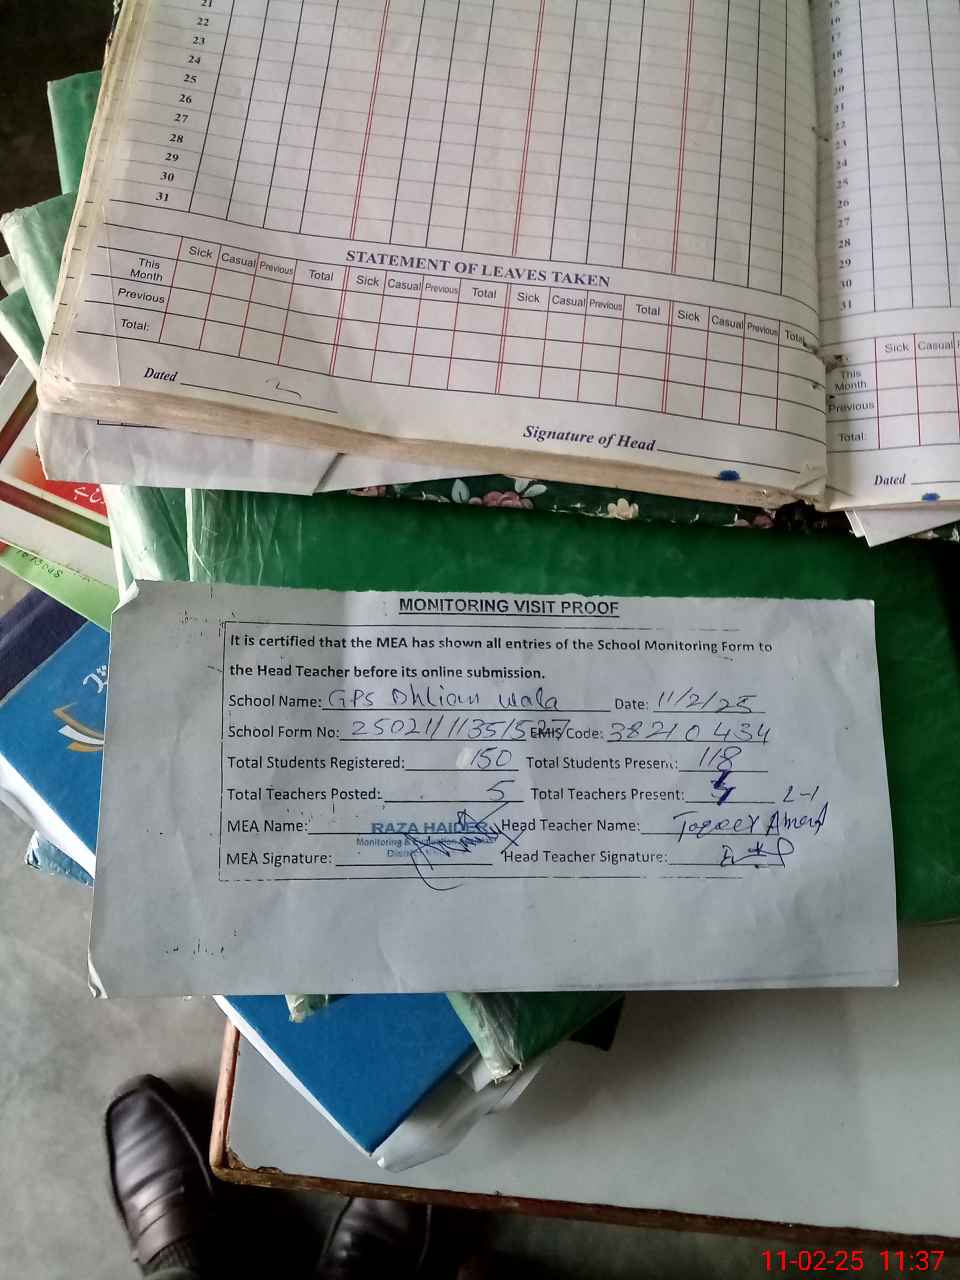 21
22
23
24
25
26
27
28
29
30
31
STATEMENT OF LEAVES TAKEN
Sick Casual Previous Total Sick Casual Previous Total Sick Casual Previous Total Sick Casual Previous Total
This Month
Previous
Total:
Dated
Signature of Head
15
16
17
18
19
20
21
22
23
24
25
26
27
28
29
30
31
Sick Casual
This Month
Previous
Total:
Dated
MONITORING VISIT PROOF
It is certified that the MEA has shown all entries of the School Monitoring Form to
the Head Teacher before its online submission.
School Name: GPS Dhlian Wala Date: 11/2/25
School Form No: 25021/1135/ EMIS Code: 38210434
Total Students Registered: 150 Total Students Present: 118
Total Teachers Posted: 5 Total Teachers Present: L-1
MEA Name: RAZA HAIDER Head Teacher Name:
Monitoring & Evaluation
MEA Signature: Head Teacher Signature:
11-02-25 11:37